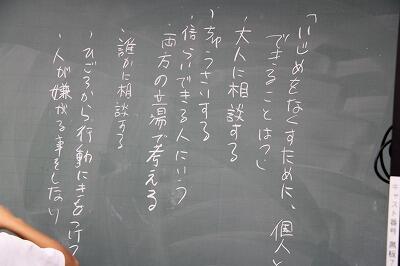 「いじめをなくすために、個人と
できることは」
・大人に相談する
・ちゅうさいする
・信らいできる人にいう
両方の立場で考える
・誰かに相談する
・ひごろから行動にきをつけて
・人が嫌がる事をしない
キャスト番号 黒板